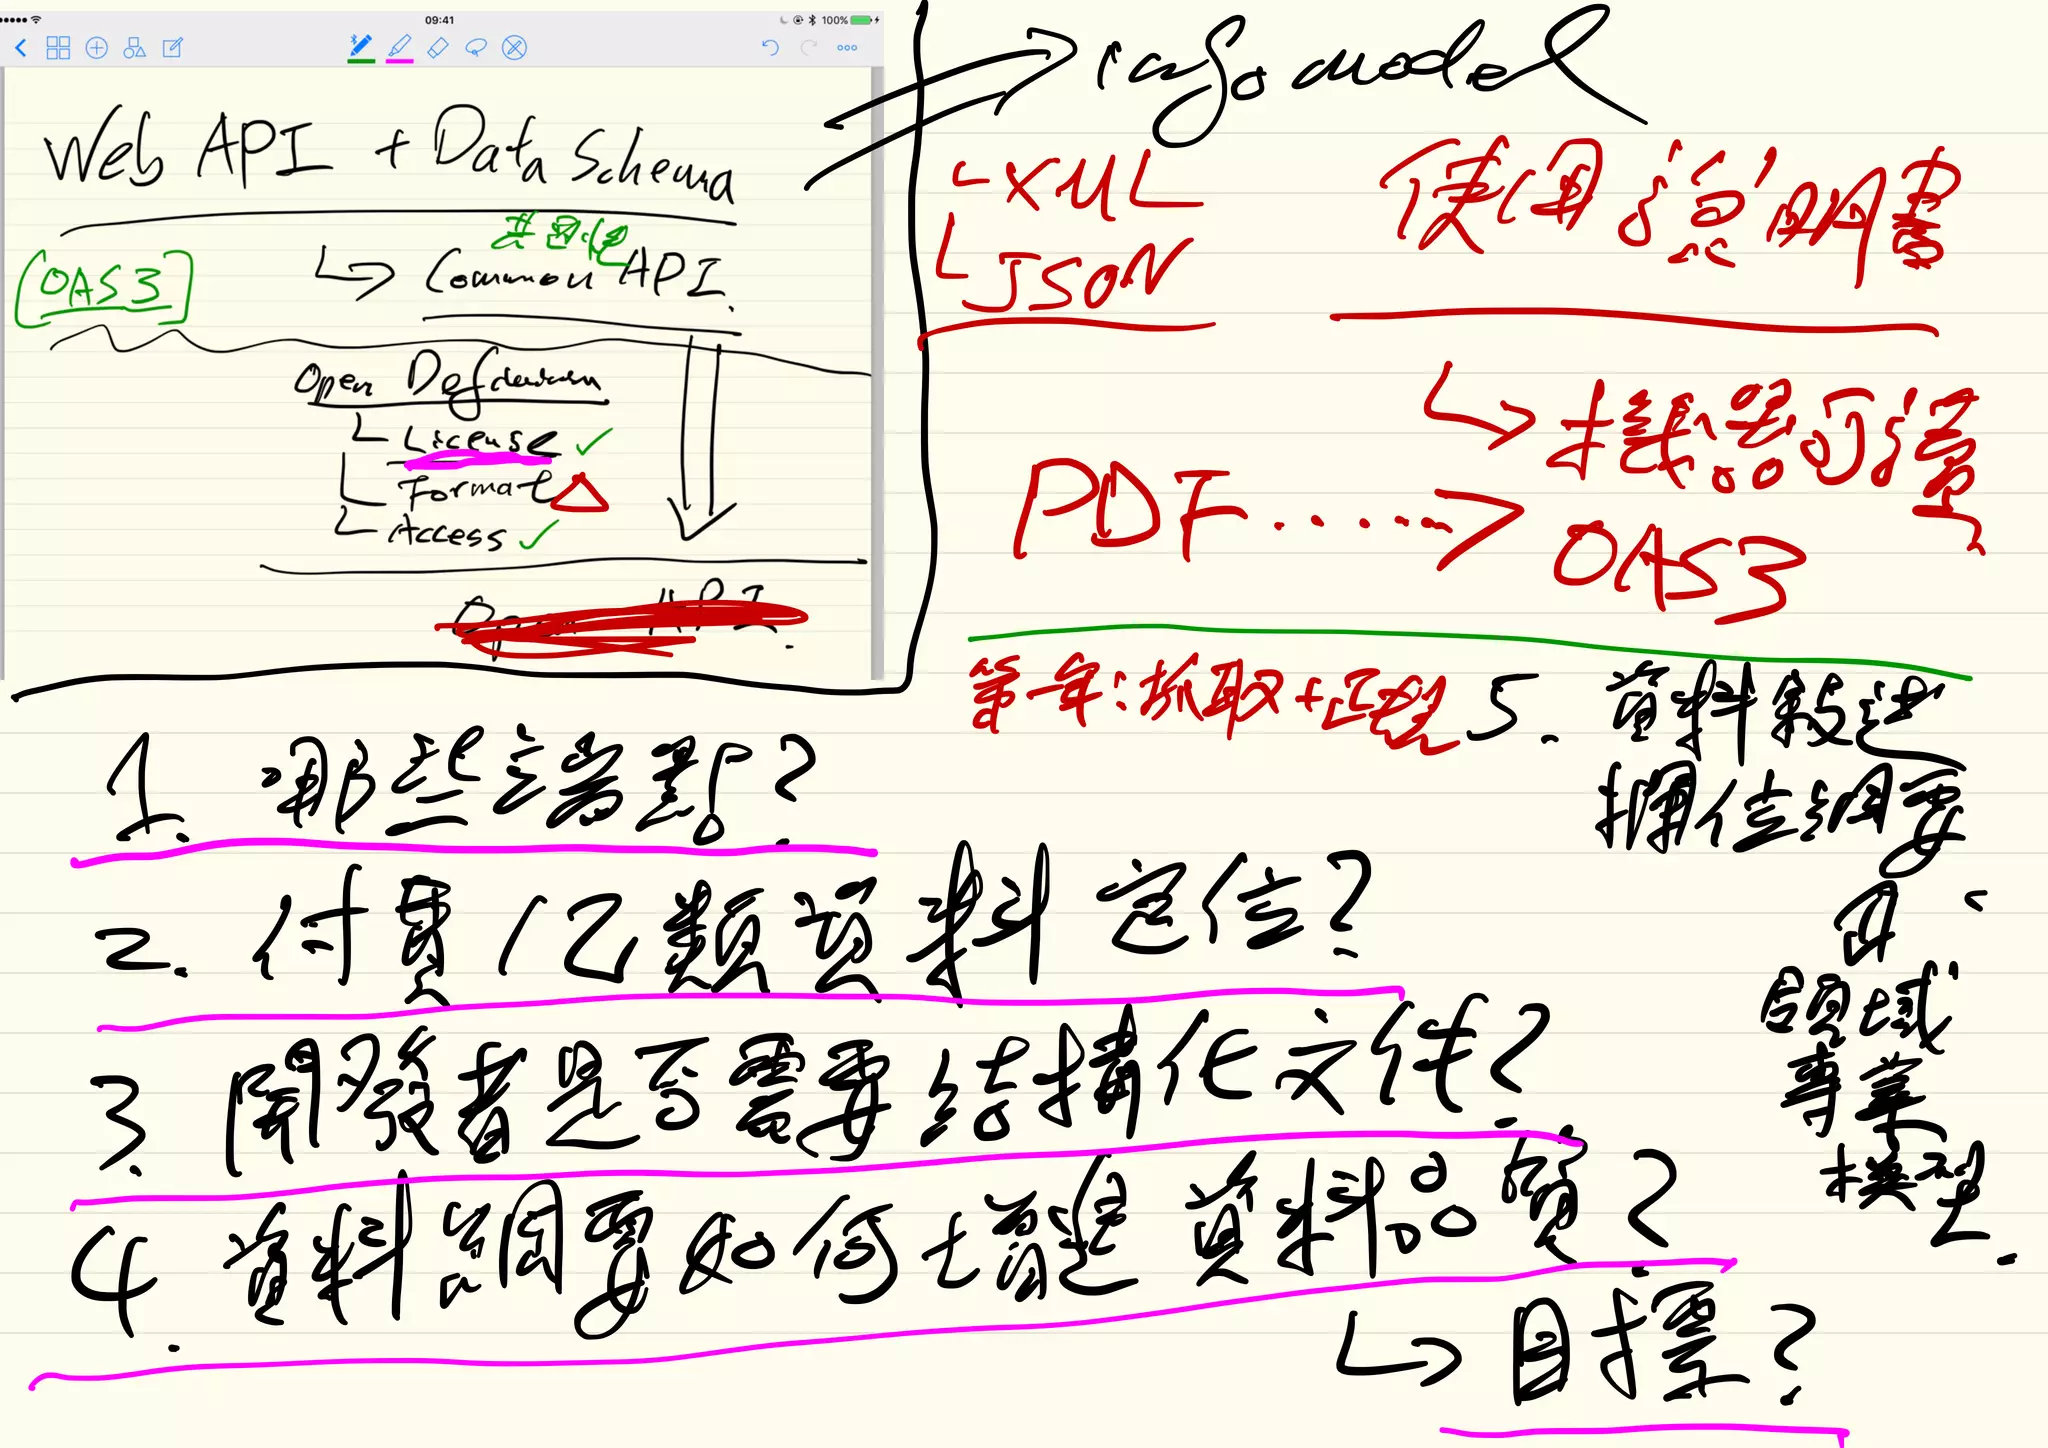 09:41
100%
Web API + Data Schema
共通性
OAS3
Common API.
Open Definition
License
Format
Access
Open API.
info model
XML
JSON
使用說明書
機器可讀
PDF……→ OAS3
第一年:抓取+正題
1. 哪些端點?
2. 付費/乙類資料定位?
3. 開發者是否需要結構化文件?
4. 資料綱要如何增進資料品質?
目標?
5. 資料敘述
欄位綱要
由
領域
專業
模型.